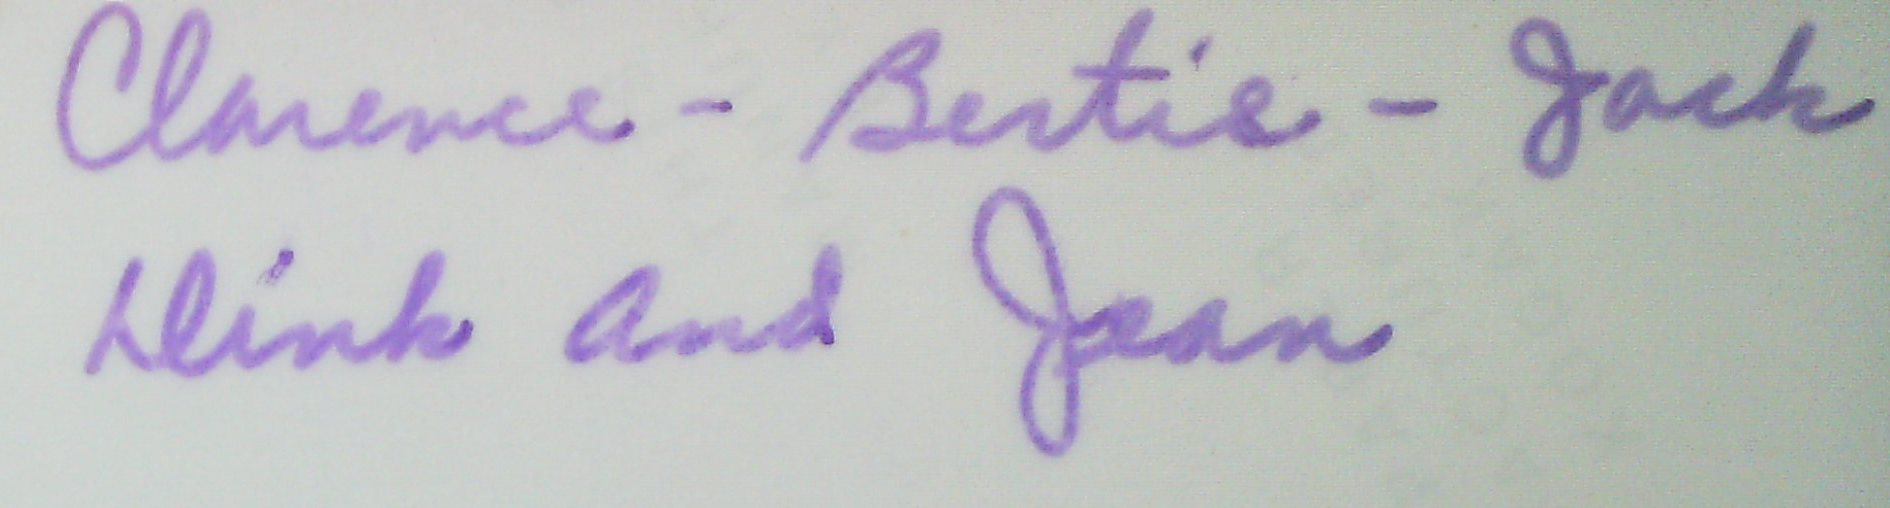 Clarence - Bertie - Jack
and Jean